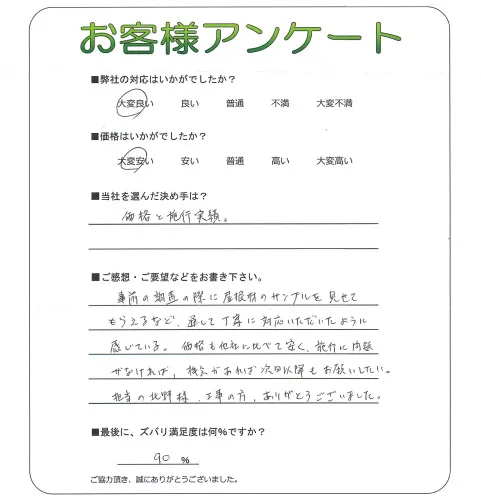 お客様アンケート
■弊社の対応はいかがでしたか？
大変良い 良い 普通 不満 大変不満
■価格はいかがでしたか？
大変安い 安い 普通 高い 大変高い
■当社を選んだ決め手は？
価格と施行実績。
■ご感想・ご要望などをお書き下さい。
事前の調査の際に屋根材のサンプルを見せて
もらえるなど、通して丁寧に対応いただいたように
感じている。価格も他社に比べて安く、施行に問題
がなければ、機会があれば次回以降もお願いしたい。
担当の北野様、工事の方、ありがとうございました。
■最後に、ズバリ満足度は何%ですか？
90 %
ご協力頂き、誠にありがとうございました。